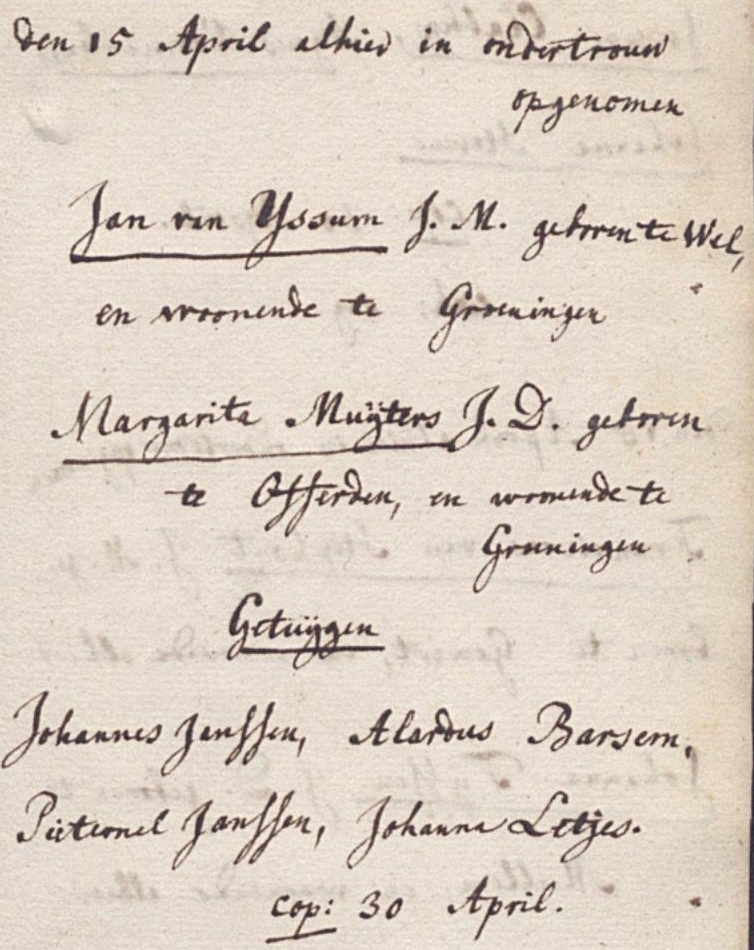 den 15 April alhier in ondertrouw
opgenomen
Jan van Yssum J. M. geboren te Wel,
en woonende te Groeningen
Margarita Muÿters J. D. geboren
te Offerden, en woonende te
Gruningen
Getuÿgen
Johannes Janssen, Alardus Barsem,
Pieternel Janssen, Johanna Letjes.
cop: 30 April.